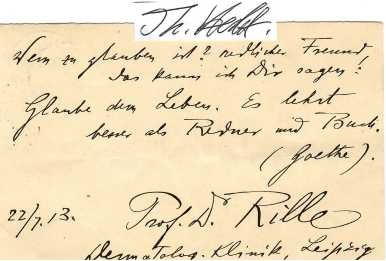 Wem zu glauben ist? redlicher Freund,
das kann ich Dir sagen:
Glaube dem Leben. Es lehrt
besser als Redner und Buch.
(Goethe).
22/7. 13.
Prof. Dr Rille
Dermatolog. Klinik, Leipzig